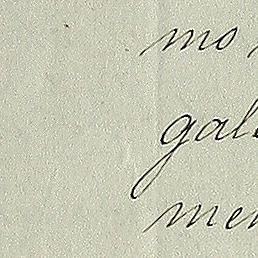 mo
gal
men